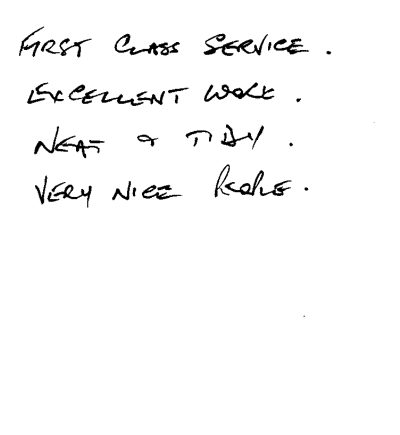 FIRST CLASS SERVICE.
EXCELLENT WORK.
NEAT & TIDY.
VERY NICE PEOPLE.